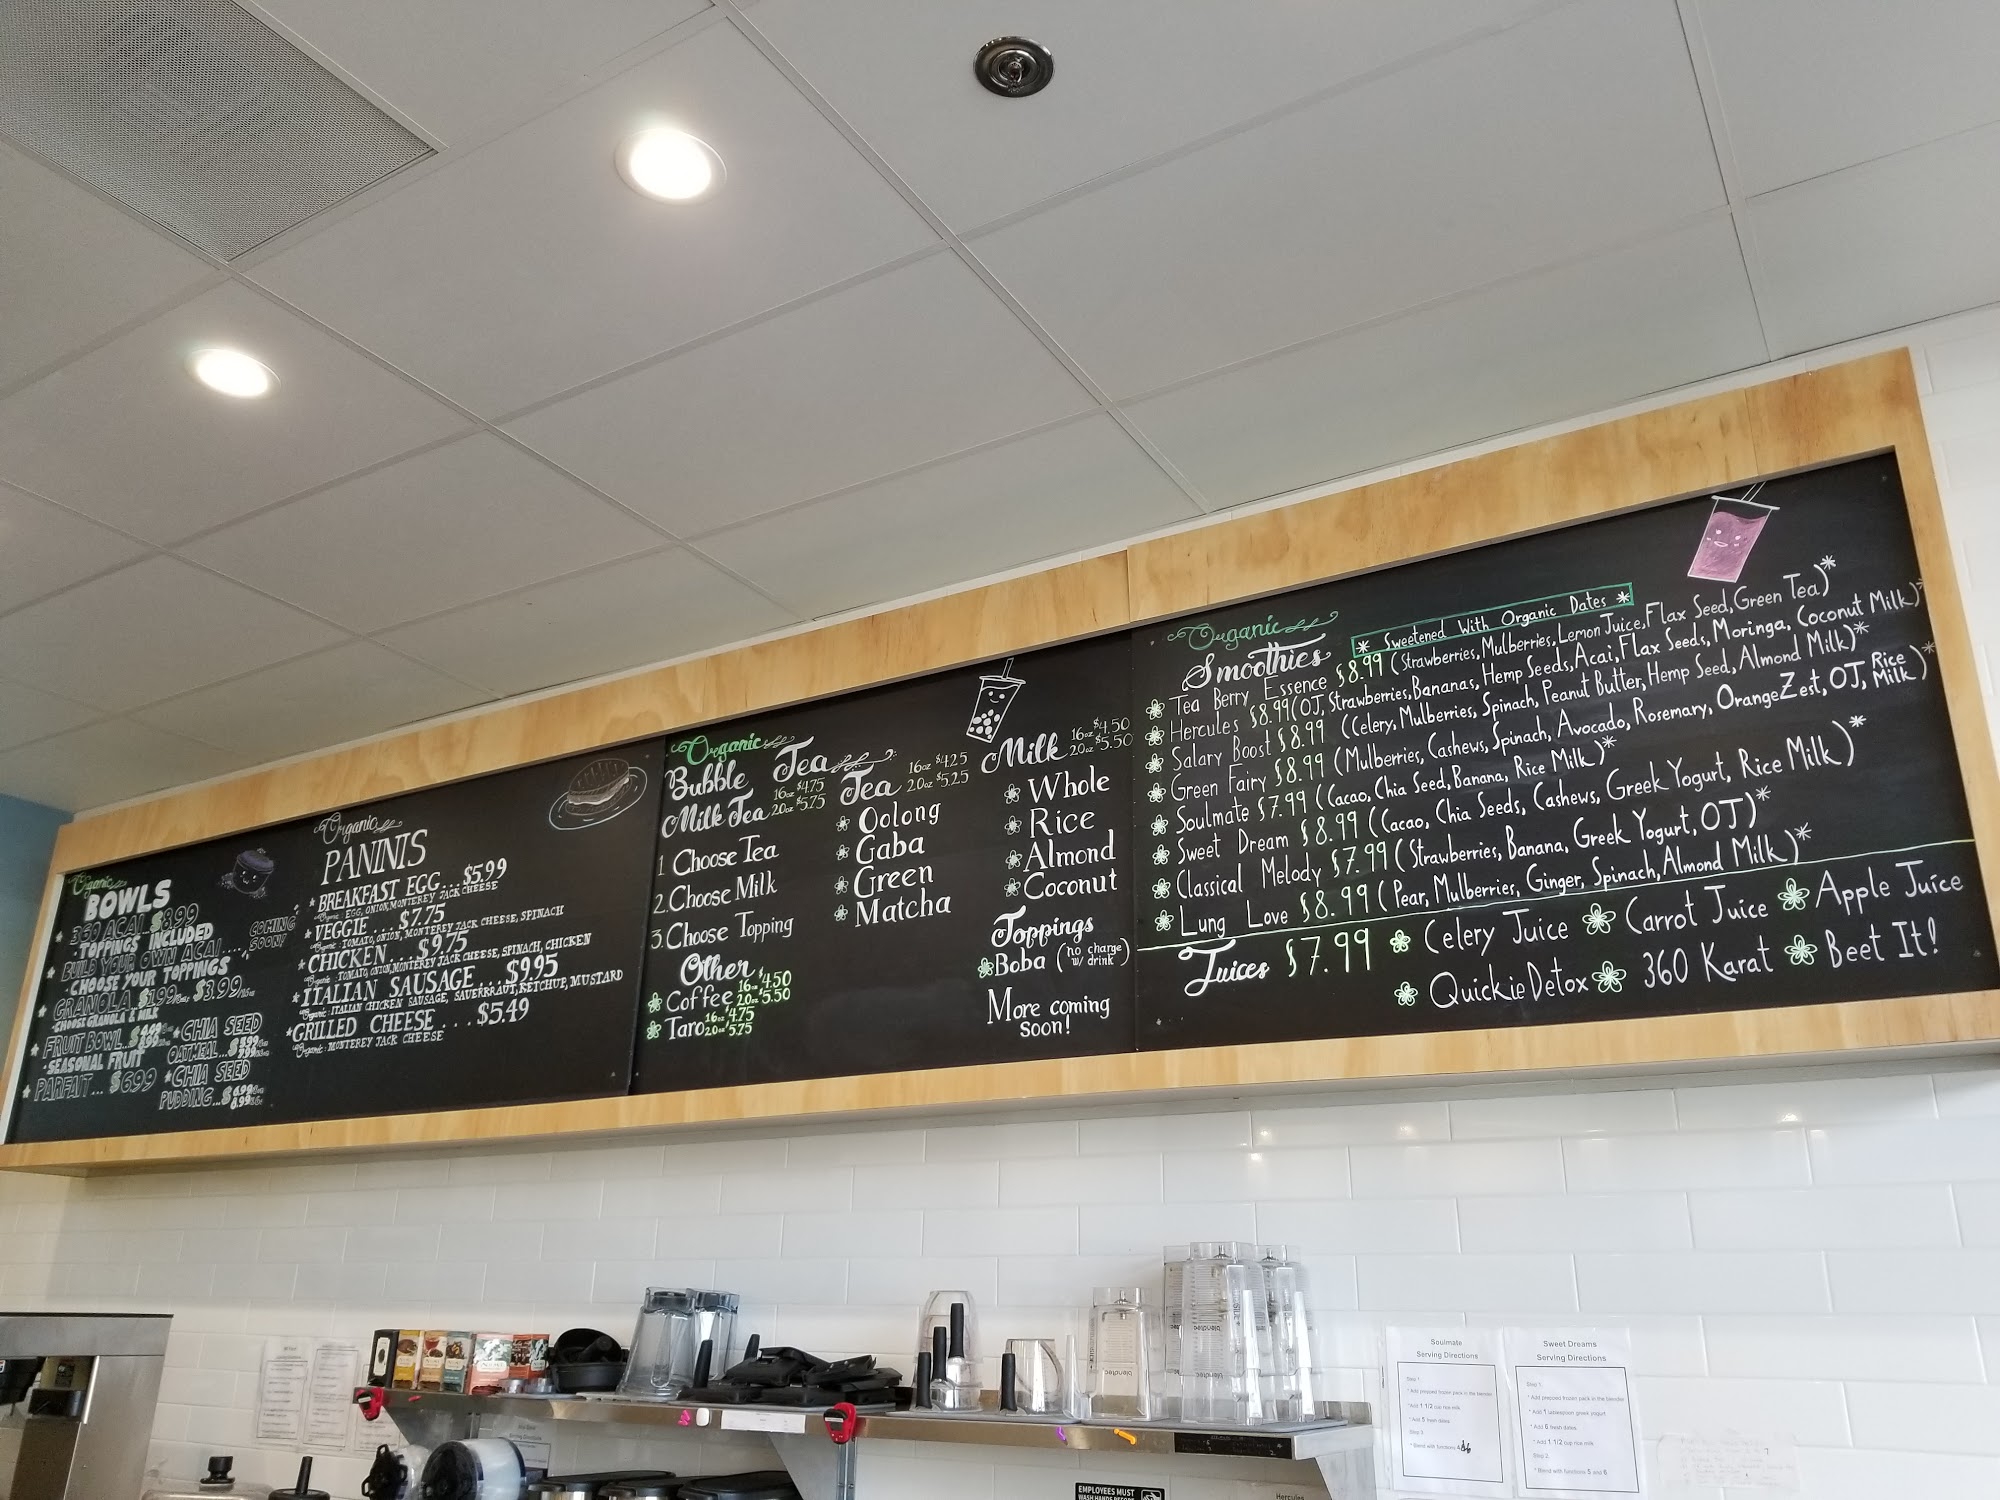 Organic
BOWLS
360 ACAI $8.99
TOPPINGS INCLUDED
BUILD YOUR OWN ACAI....
COMING SOON!
• CHOOSE YOUR TOPPINGS
GRANOLA $1.99 $3.99
• CHOOSE GRANOLA & MILK
FRUIT BOWL...
• SEASONAL FRUIT
PARFAIT... $6.99
CHIA SEED
OATMEAL...
CHIA SEED
PUDDING...
Organic
PANINIS
* BREAKFAST EGG... $5.99
Organic: EGG, ONION, MONTEREY JACK CHEESE
* VEGGIE ... $7.75
Organic: TOMATO, ONION, MONTEREY JACK CHEESE, SPINACH
* CHICKEN ... $9.75
Organic: TOMATO, ONION, MONTEREY JACK CHEESE, SPINACH, CHICKEN
* ITALIAN SAUSAGE ... $9.95
Organic: ITALIAN CHICKEN SAUSAGE, SAUERKRAUT, KETCHUP, MUSTARD
* GRILLED CHEESE ... $5.49
Organic: MONTEREY JACK CHEESE
Organic
Bubble Tea
Milk Tea 16oz $4.75 20oz $5.75
1 Choose Tea
2. Choose Milk
3. Choose Topping
Other
Coffee 16oz $4.50 20oz $5.50
Taro 16oz $4.75 20oz $5.75
Tea 16oz $4.25 20oz $5.25
Oolong
Gaba
Green
Matcha
Milk 16oz $4.50 20oz $5.50
Whole
Rice
Almond
Coconut
Toppings
Boba (no charge w/ drink)
More coming soon!
Organic
Smoothies
* Sweetened With Organic Dates *
Tea Berry Essence $8.99 (Strawberries, Mulberries, Lemon Juice, Flax Seed, Green Tea)*
Hercules $8.99 (OJ, Strawberries, Bananas, Hemp Seeds, Acai, Flax Seeds, Moringa, Coconut Milk)*
Salary Boost $8.99 (Celery, Mulberries, Spinach, Peanut Butter, Hemp Seed, Almond Milk)*
Green Fairy $8.99 (Mulberries, Cashews, Spinach, Avocado, Rosemary, Orange Zest, OJ, Rice Milk)*
Soulmate $7.99 (Cacao, Chia Seed, Banana, Rice Milk)*
Sweet Dream $8.99 (Cacao, Chia Seeds, Cashews, Greek Yogurt, Rice Milk)*
Classical Melody $7.99 (Strawberries, Banana, Greek Yogurt, OJ)*
Lung Love $8.99 (Pear, Mulberries, Ginger, Spinach, Almond Milk)*
Juices $7.99 Celery Juice Carrot Juice Apple Juice
Quickie Detox 360 Karat Beet It!
Soulmate
Serving Directions
Step 1
* Add prepped frozen pack in the blender
* Add 1 1/2 cup rice milk
* Add 5 fresh dates
* Blend with functions
Sweet Dreams
Serving Directions
Step 1:
* Add prepped frozen pack in the blender
* Add 6 fresh dates
* Add 1 1/2 cup rice milk
Step 2:
* Blend with functions 5 and 6
blendtec
EMPLOYEES MUST
WASH HANDS BEFORE
Hercules